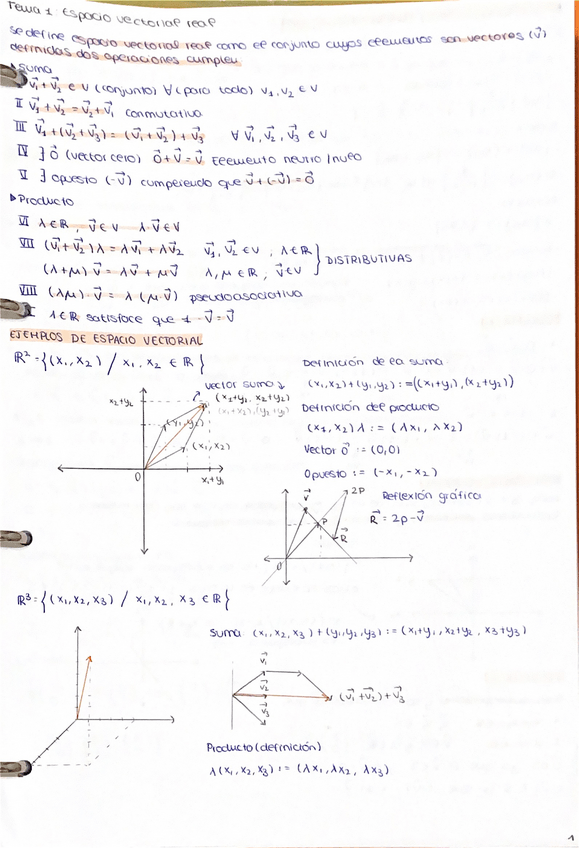 Tema 1 Espacio vectorial real
Se define espacio vectorial real como el conjunto cuyos elementos son vectores (v⃗)
definidas dos operaciones cumplen
▸ Suma
v⃗₁ + v⃗₂ ∈ V (conjunto) ∀ (para todo) v₁, v₂ ∈ V
II v⃗₁ + v⃗₂ = v⃗₂ + v⃗₁ conmutativa
III v⃗₁ + (v⃗₂ + v⃗₃) = (v⃗₁ + v⃗₂) + v⃗₃ ∀ v⃗₁, v⃗₂, v⃗₃ ∈ V
IV ∃ 0⃗ (vector cero) 0⃗ + v⃗ = v⃗ Elemento neutro / nulo
V ∃ opuesto (-v⃗) cumpliendo que v⃗ + (-v⃗) = 0⃗
▸ Producto
VI λ ∈ ℝ, v⃗ ∈ V λ·v⃗ ∈ V
VII (v⃗₁ + v⃗₂) λ = λv⃗₁ + λv⃗₂ v⃗₁, v⃗₂ ∈ V, λ ∈ ℝ
(λ+μ)·v⃗ = λv⃗ + μv⃗ λ, μ ∈ ℝ, v⃗ ∈ V } DISTRIBUTIVAS
VIII (λμ)·v⃗ = λ(μ·v⃗) pseudoasociativa
1 ∈ ℝ satisface que 1·v⃗ = v⃗
EJEMPLOS DE ESPACIO VECTORIAL
ℝ² = {(x₁, x₂) / x₁, x₂ ∈ ℝ}
Definición de la suma
(x₁, x₂) + (y₁, y₂) := ((x₁+y₁), (x₂+y₂))
Definición del producto
(x₁, x₂) λ := (λx₁, λx₂)
Vector 0⃗ := (0,0)
Opuesto := (-x₁, -x₂)
vector suma ↓
(x₂+y₁, x₂+y₂)
(x₁+x₂), (y₂+y₁)
x₂+y₂
(y₁, y₂)
(x₁, x₂)
0
x₁+y₁
Reflexión gráfica
R⃗ = 2p - v⃗
v⃗
2P
P
R⃗
0
ℝ³ = {(x₁, x₂, x₃) / x₁, x₂, x₃ ∈ ℝ}
Suma (x₁, x₂, x₃) + (y₁, y₂, y₃) := (x₁+y₁, x₂+y₂, x₃+y₃)
v⃗₁
v⃗₂
v⃗₃
(v⃗₁ + v⃗₂) + v⃗₃
Producto (definición)
λ(x₁, x₂, x₃) := (λx₁, λx₂, λx₃)
1